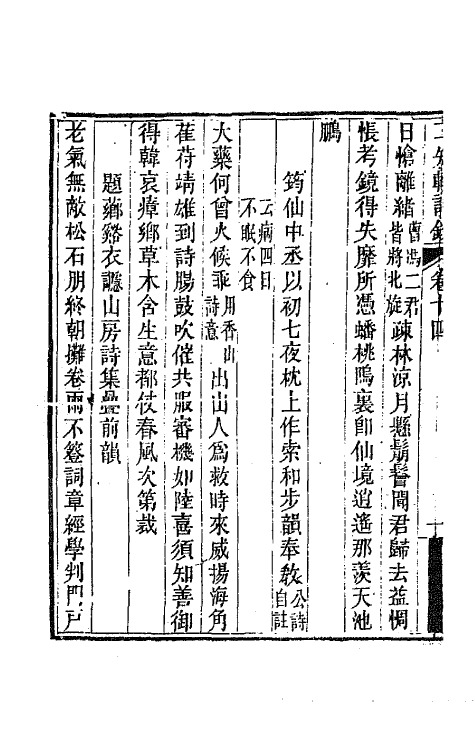 二知軒詩鈔 卷十四
日愴離緒曹馮二君皆將北旋疎林涼月懸鬅髻聞君歸去益惆
悵考鏡得失靡所憑蟠桃隝裏卽仙境逍遙那羨天池
鵬
筠仙中丞以初七夜枕上作索和步韻奉敎公詩自註
云病四日不眠不食
大藥何曾火候乖用香山詩意出山人爲救時來威揚海角
萑苻靖雄到詩腸鼓吹催共服審機如陸喜須知善御
得韓哀瘴鄉草木含生意都仗春風次第裁
題薌谿衣讔山房詩集疊前韻
老氣無敵松石朋終朝攤卷雨不簦詞章經學判門戶